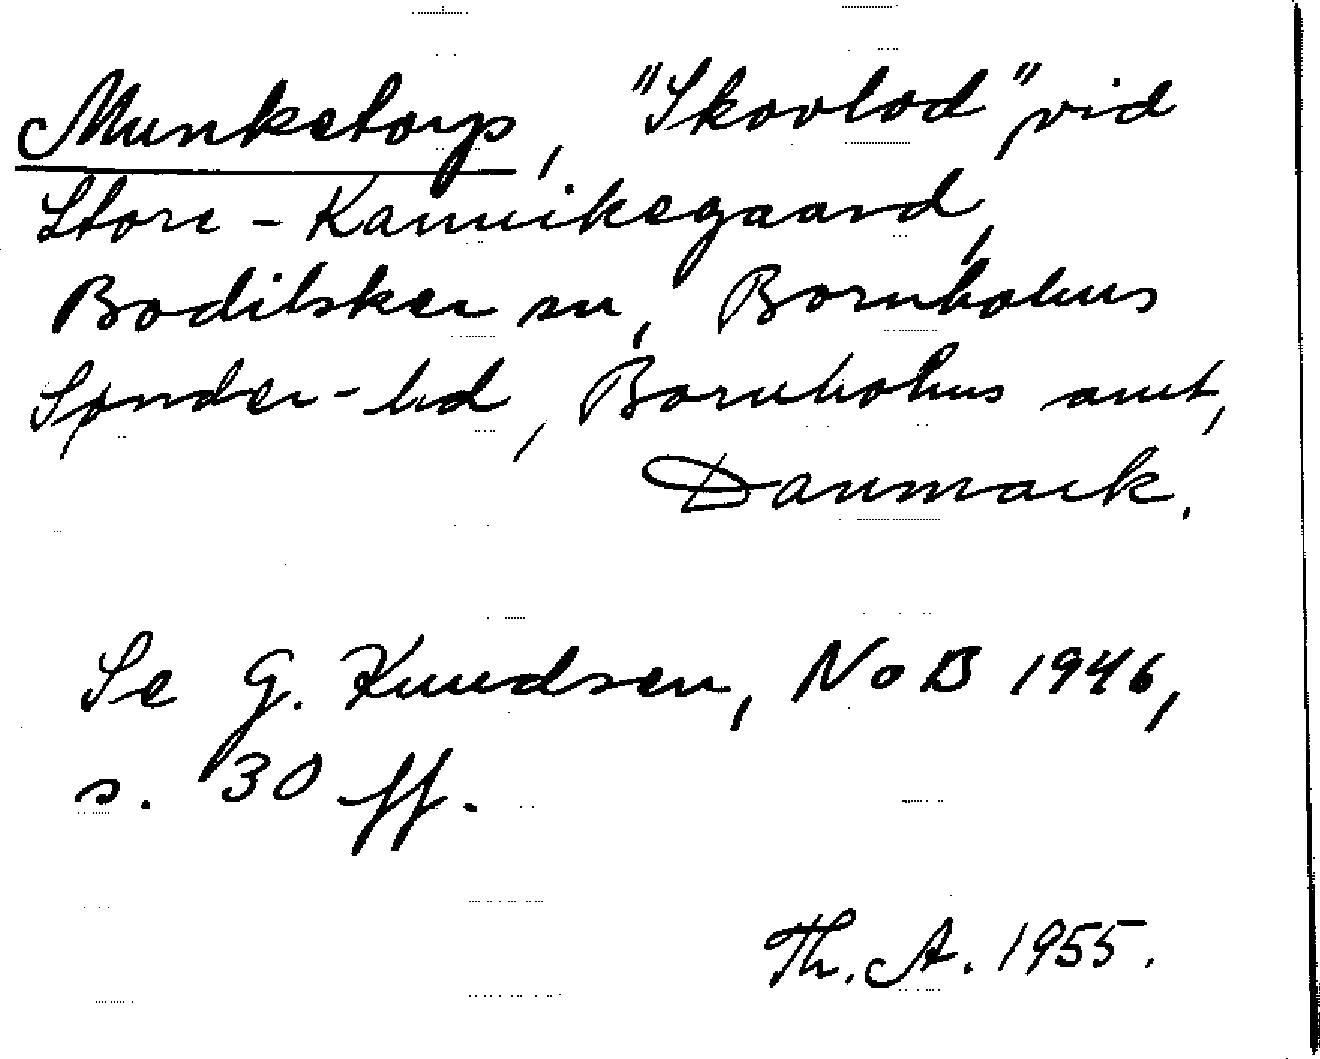 Munketorp, "Skovlod" vid
Store-Kannikegaard,
Bodilsker sn, Bornholms
Sønder-hd, Bornholms amt,
Danmark.
Se G. Knudsen, NoB 1946,
s. 30 ff.
Th. A. 1955.